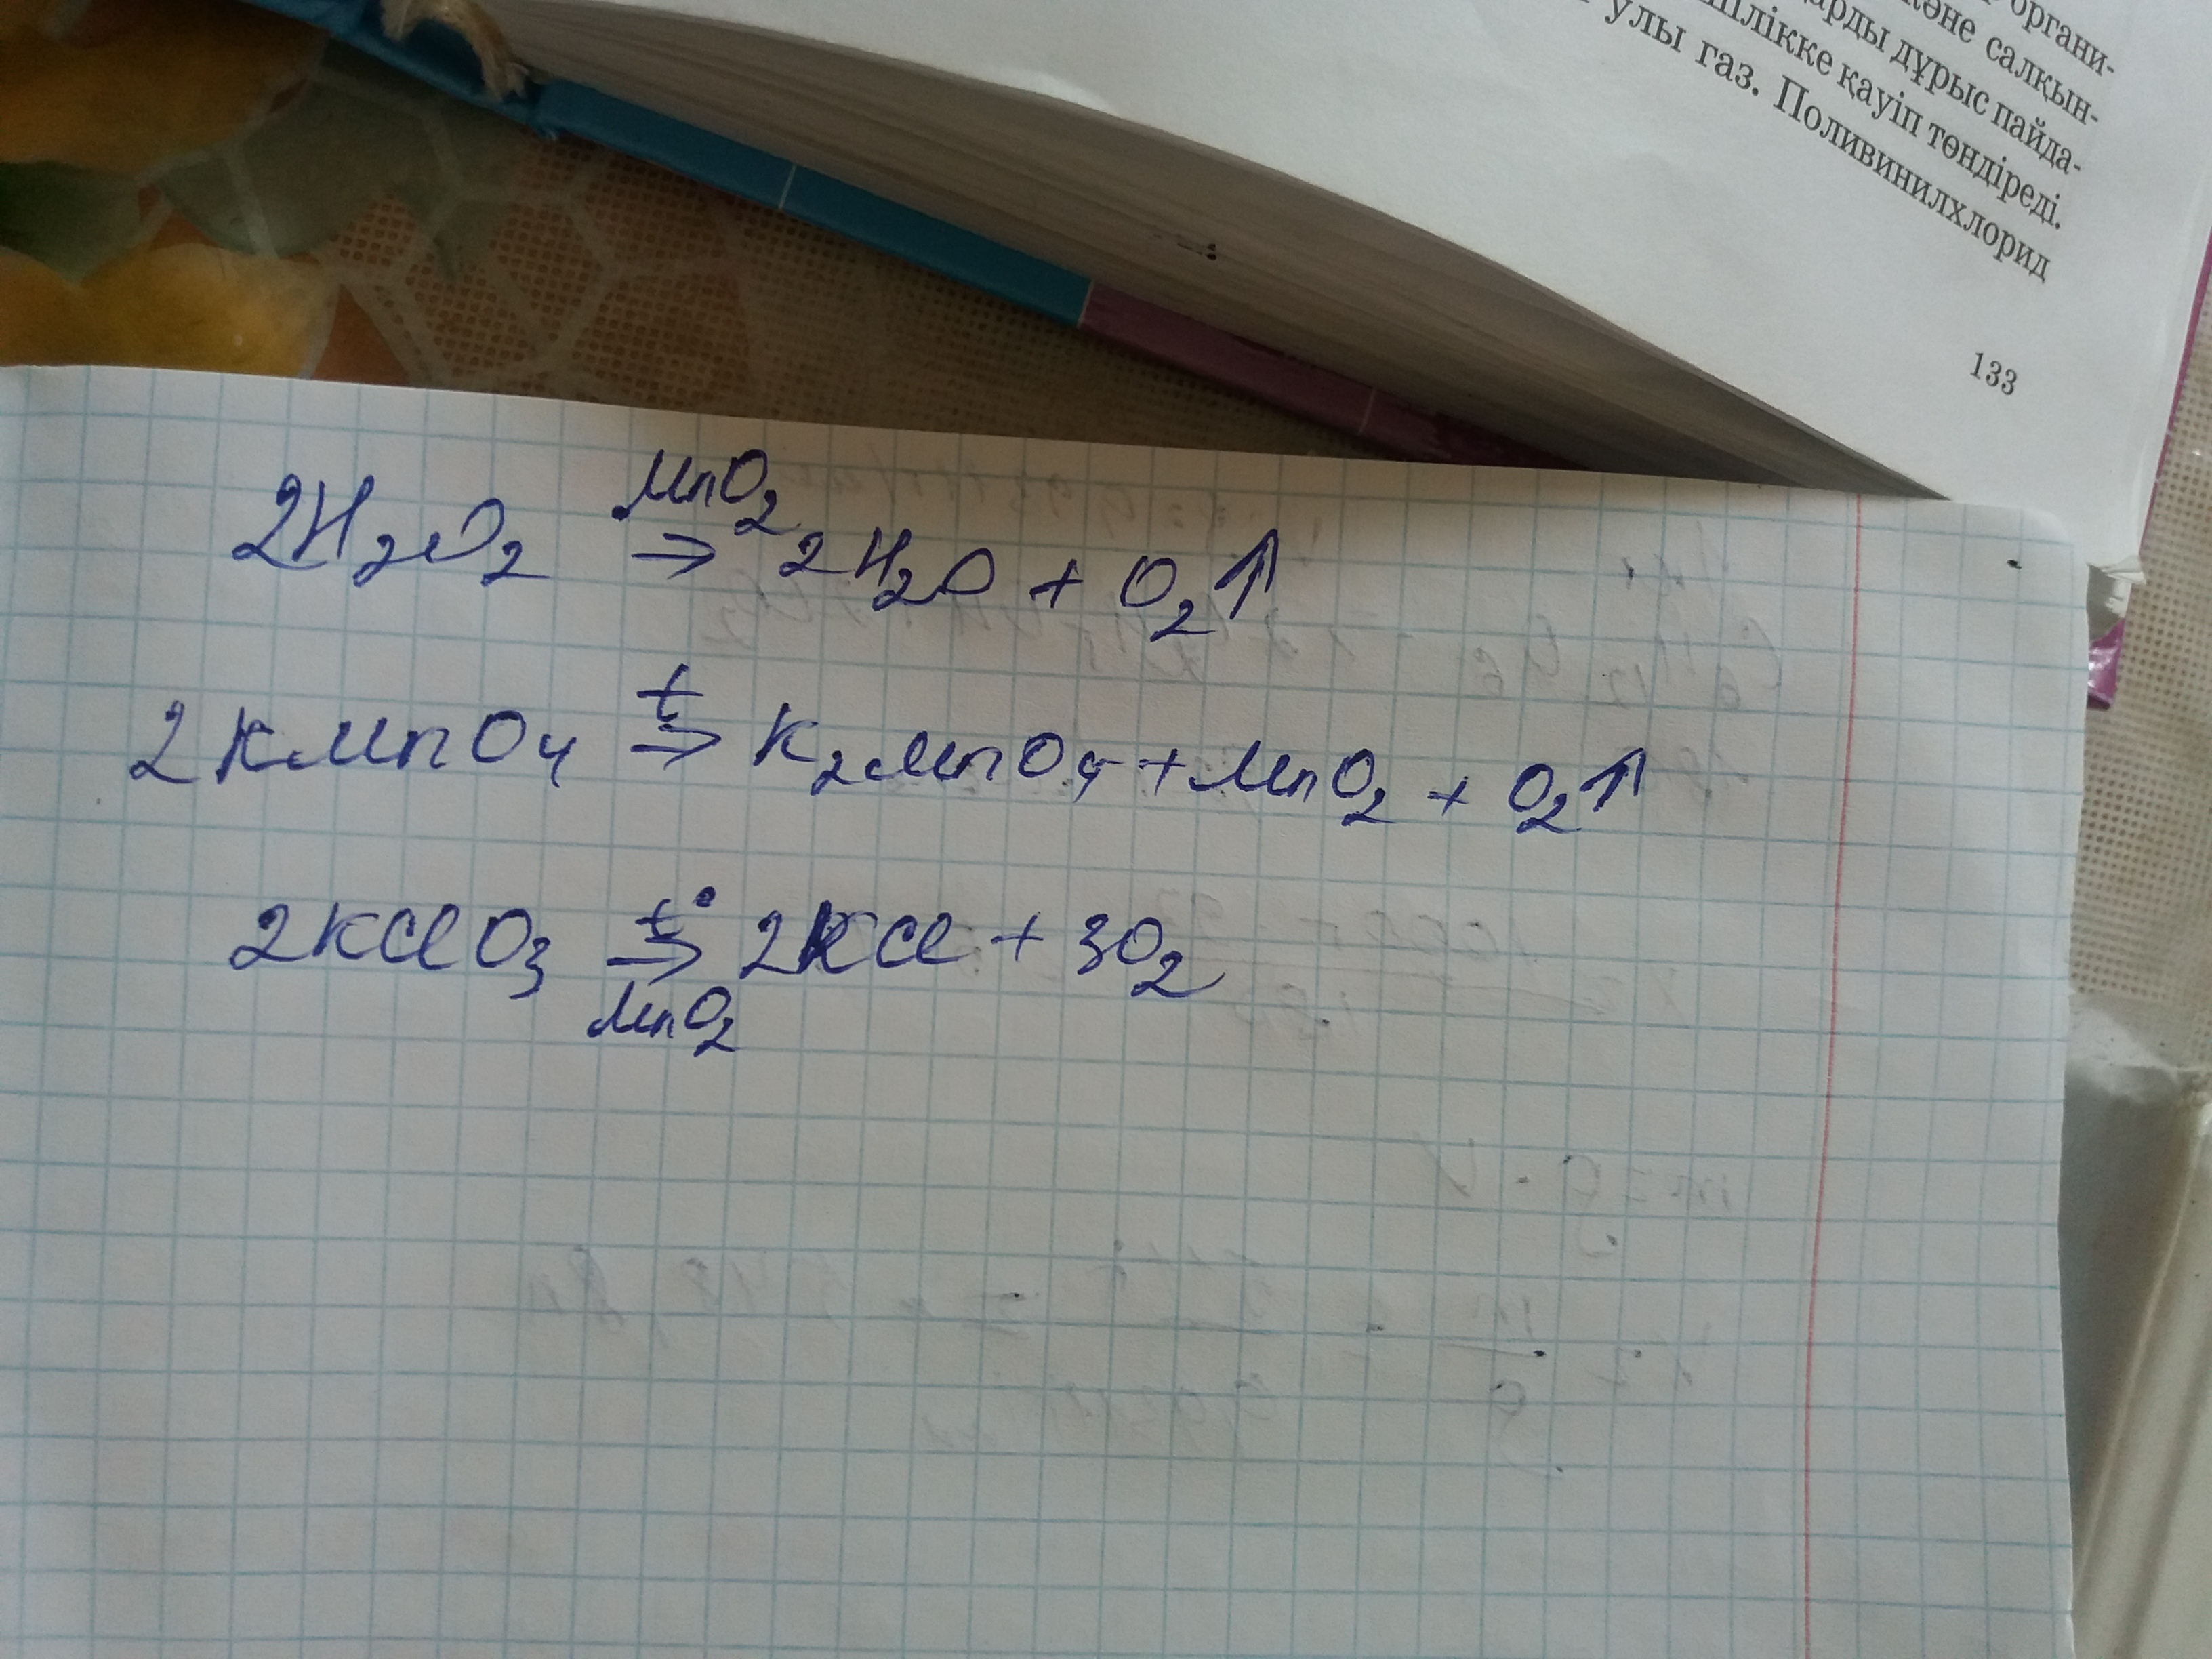 органи-
және салқын-
арды дұрыс пайда-
шілікке қауіп төндіреді.
улы газ. Поливинилхлорид
133
2H₂O₂ →(MnO₂) 2H₂O + O₂↑
2KMnO₄ →(t) K₂MnO₄ + MnO₂ + O₂↑
2KClO₃ →(t°, MnO₂) 2KCl + 3O₂